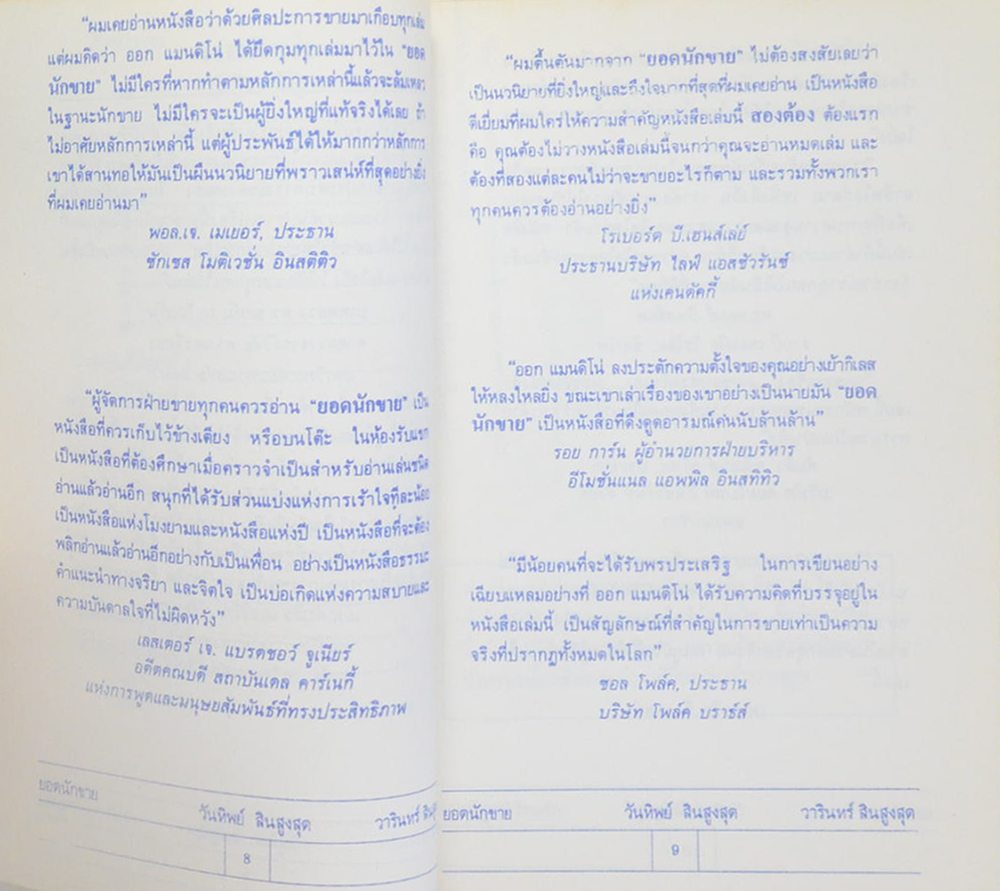 “ผมเคยอ่านหนังสือว่าด้วยศิลปะการขายมาเกือบทุกเล่ม
แต่ผมคิดว่า ออก แมนดิโน่ ได้ยึดกุมทุกเล่มมาไว้ใน “ยอด
นักขาย” ไม่มีใครที่หากทำตามหลักการเหล่านี้แล้วจะล้มเหลว
ในฐานะนักขาย ไม่มีใครจะเป็นผู้ยิ่งใหญ่ที่แท้จริงได้เลย ถ้า
ไม่อาศัยหลักการเหล่านี้ แต่ผู้ประพันธ์ได้ให้มากกว่าหลักการ
เขาได้สานทอให้มันเป็นผืนนวนิยายที่พราวเสน่ห์ที่สุดอย่างยิ่ง
ที่ผมเคยอ่านมา”
พอล.เจ. เมเยอร์, ประธาน
ซักเซส โมติเวชั่น อินสติติว
“ผู้จัดการฝ่ายขายทุกคนควรอ่าน “ยอดนักขาย” เป็น
หนังสือที่ควรเก็บไว้ข้างเตียง หรือบนโต๊ะ ในห้องรับแขก
เป็นหนังสือที่ต้องศึกษาเมื่อคราวจำเป็นสำหรับอ่านเล่นชนิด
อ่านแล้วอ่านอีก สนุกที่ได้รับส่วนแบ่งแห่งการเร้าใจทีละน้อย
เป็นหนังสือแห่งโมงยามและหนังสือแห่งปี เป็นหนังสือที่จะต้อง
พลิกอ่านแล้วอ่านอีกอย่างกับเป็นเพื่อน อย่างเป็นหนังสือธรรมะ
คำแนะนำทางจริยา และจิตใจ เป็นบ่อเกิดแห่งความสบายและ
ความบันดาลใจที่ไม่ผิดหวัง”
เลสเตอร์ เจ. แบรดชอว์ จูเนียร์
อดีตคณบดี สถาบันเดล คาร์เนกี้
แห่งการพูดและมนุษยสัมพันธ์ที่ทรงประสิทธิภาพ
ยอดนักขาย
วันทิพย์ สินสูงสุด
วารินทร์ สิน
8
“ผมตื้นตันมากจาก “ยอดนักขาย” ไม่ต้องสงสัยเลยว่า
เป็นนวนิยายที่ยิ่งใหญ่และถึงใจมากที่สุดที่ผมเคยอ่าน เป็นหนังสือ
ดีเยี่ยมที่ผมใคร่ให้ความสำคัญหนังสือเล่มนี้ สองต้อง ต้องแรก
คือ คุณต้องไม่วางหนังสือเล่มนี้จนกว่าคุณจะอ่านหมดเล่ม และ
ต้องที่สองแต่ละคนไม่ว่าจะขายอะไรก็ตาม และรวมทั้งพวกเรา
ทุกคนควรต้องอ่านอย่างยิ่ง”
โรเบอร์ต บี.เฮนส์เล่ย์
ประธานบริษัท ไลฟ์ แอสชัวรันซ์
แห่งเคนตัคกี้
“ออก แมนดิโน่ ลงประตักความตั้งใจของคุณอย่างเย้ากิเลส
ให้หลงใหลยิ่ง ขณะเขาเล่าเรื่องของเขาอย่างเป็นนายมัน “ยอด
นักขาย” เป็นหนังสือที่ดึงดูดอารมณ์คนนับล้านล้าน”
รอย การ์น ผู้อำนวยการฝ่ายบริหาร
อีโมชั่นแนล แอพพิล อินสทิทิว
“มีน้อยคนที่จะได้รับพรประเสริฐ ในการเขียนอย่าง
เฉียบแหลมอย่างที่ ออก แมนดิโน่ ได้รับความคิดที่บรรจุอยู่ใน
หนังสือเล่มนี้ เป็นสัญลักษณ์ที่สำคัญในการขายเท่าเป็นความ
จริงที่ปรากฏทั้งหมดในโลก”
ซอล โพล์ค, ประธาน
บริษัท โพล์ค บราธ์ส์
ยอดนักขาย
วันทิพย์ สินสูงสุด
วารินทร์ สินสูงสุด
9